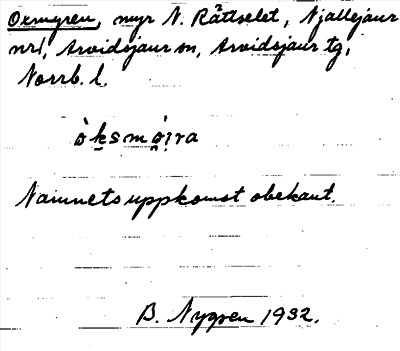 Oxmyren, myr N. Råttselet, Njallejaur
nr1, Arvidsjaur sn, Arvidsjaur tg,
Norrb. l.
òksmó̤i̤ra
Namnets uppkomst obekant.
B. Nygren 1932.